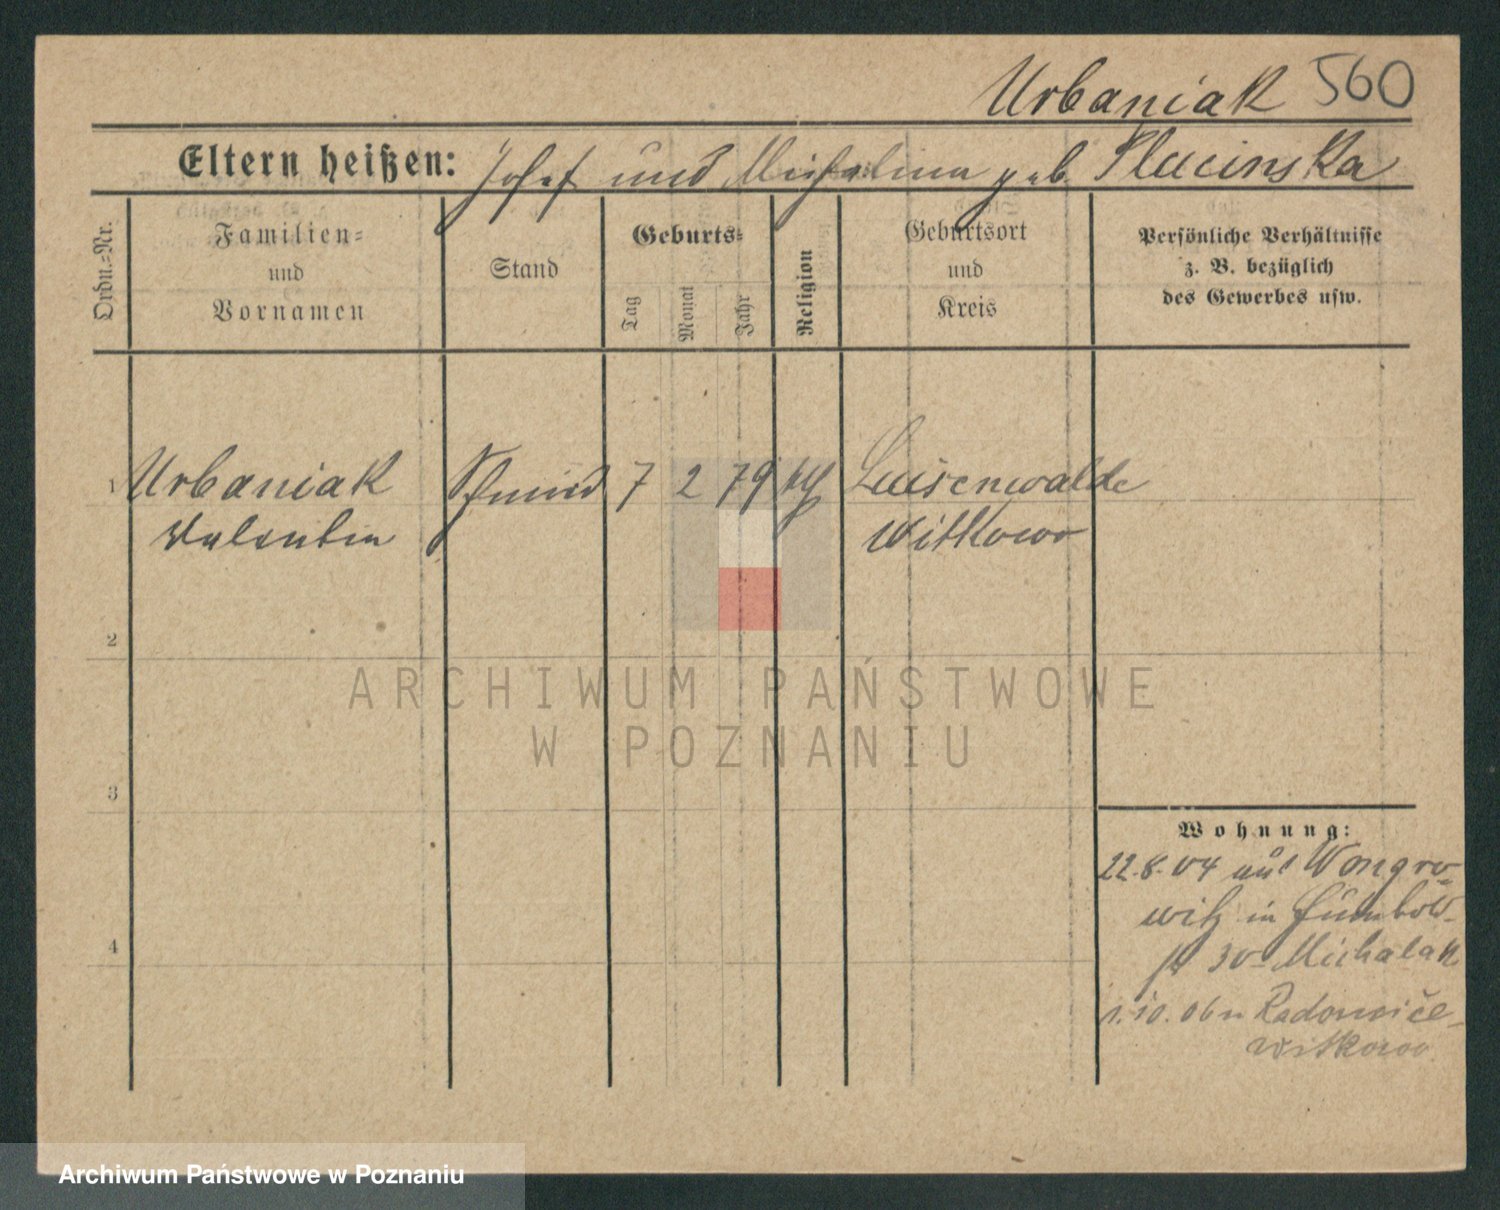 Urbaniak 560
Eltern heißen: Josef und Michalina geb. Plucinska
Ordn.-Nr.
Familien- und Vornamen
Stand
Geburts-
Tag
Monat
Jahr
Religion
Geburtsort und Kreis
Persönliche Verhältnisse
z. B. bezüglich
des Gewerbes usw.
1 Urbaniak Schmied 7 2 79 kth Luisenwalde
Valentin Witkowo
2
ARCHIWUM PAŃSTWOWE
W POZNANIU
3
Wohnung:
22.8.04 aus Wongro-
witz in Humbold-
st 30 Michalak
4
1.10.06 n
Witkowo
Archiwum Państwowe w Poznaniu